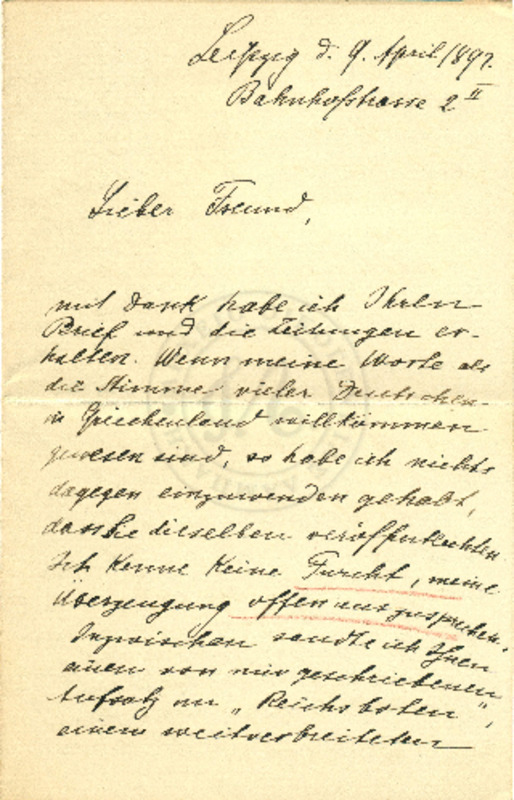 Leipzig d. 9. April 1897.
Bahnhofstrasse 2 II
Lieber Freund,
mit Dank habe ich Ihren
Brief und die Zeitungen er-
halten. Wenn meine Worte als
die Stimme vieler Deutschen
in Griechenland willkommen
gewesen sind, so habe ich nichts
dagegen einzuwenden gehabt,
dass Sie dieselben veröffentlichten.
Ich kenne keine Furcht, meine
Überzeugung offen auszusprechen.
Inzwischen sandte ich Ihnen
einen von mir geschriebenen
Aufsatz im „Reichsboten“,
einem weitverbreiteten